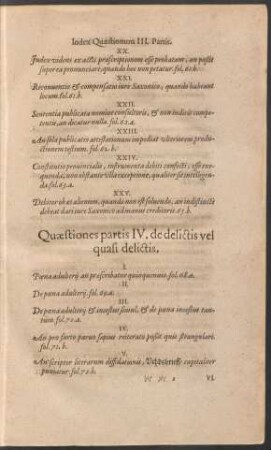 Index Quæstionum III. Partis.
XX.
Iudex videns ex actis præscriptionem esse probatam, an possit
super ea pronunciare, quando hoc non petatur. fol. 61. b.
XXI.
Reconuentio & compensatio iure Saxonico, quando habeant
locum. fol. 61. b.
XXII.
Sententia publicata nomine consultoris, & non iudicis compe-
tentis, an dicatur nulla. fol. 62. a.
XXIII.
An sola publicatio attestationum impediat vlteriorem produ-
ctionem testium. fol. 62. b.
XXIV.
Constitutio prouincialis, instrumenta debiti confecti, esse exe-
quenda, non obstante vlla exceptione, qualiter sit intelligen-
da. fol. 63. a.
XXV.
Debitor ob æs alienum, quando non est soluendo, an indistinctè
debeat dari iure Saxonico ad manus creditoris. 65. b.
Quæstiones partis IV. de delictis vel
quasi delictis.
I.
Pœna adulterij an præscribatur quinquennio. fol. 68. a.
II.
De pœna adulterij. fol. 69. a.
III.
De pœna adulterij & incestus simul, & de pœna incestus tan-
tùm. fol. 70. a.
IV.
An pro furto paruo sæpius reiterato possit quis strangulari.
fol. 71. b.
V.
An scriptor literarum diffidationis, capitaliter
puniatur. fol. 72. b.
VI.